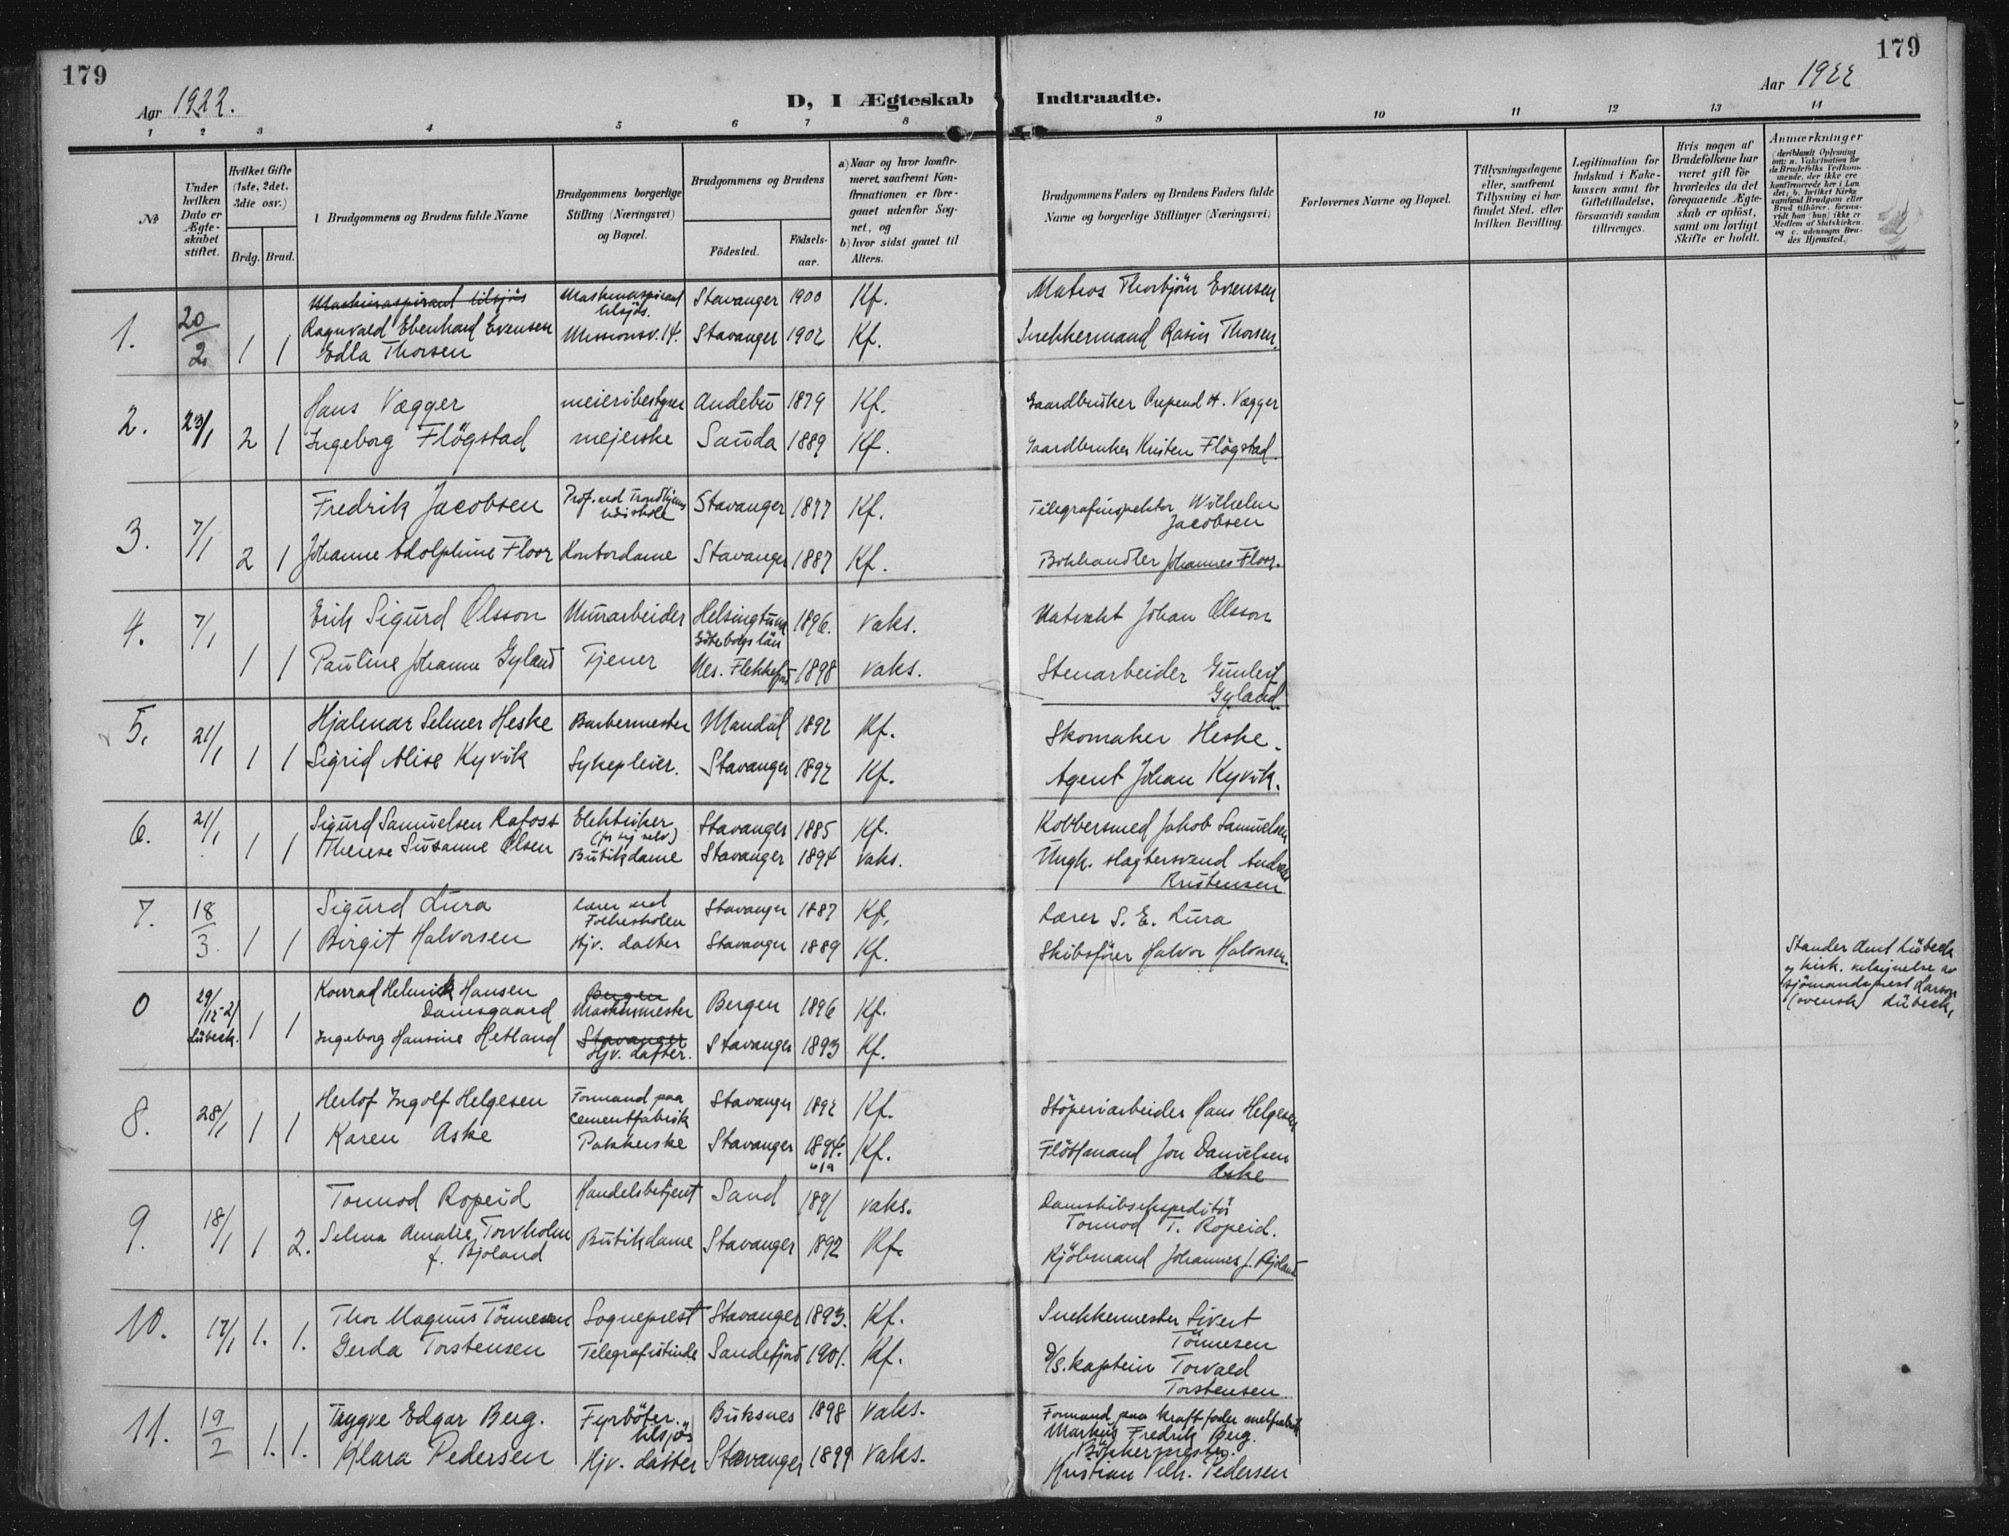 179
179
Aar 1922.
D, I Ægteskab Indtraadte.
Aar 1922
1 2 3 4 5 6 7 8 9 10 11 12 13 14
No
Under hvilken Dato er Ægteskabet stiftet.
Hvilket Gifte (1ste, 2det, 3die osv.)
Brdg. Brud.
Brudgommens og Brudens fulde Navne
Brudgommens borgerlige Stilling (Næringsvei) og Bopæl.
Brudgommens og Brudens
Fødested. Fødselsaar.
a) Naar og hvor konfirmeret, saafremt Konfirmationen er foregaaet udenfor Sognet, og
b) hvor sidst gaaet til Alters.
Brudgommens Faders og Brudens Faders fulde Navne og borgerlige Stillinger (Næringsvei)
Forlovernes Navne og Bopæl.
Tillysningsdagene eller, saafremt Tillysning ei har fundet Sted, efter hvilken Bevilling.
Legitimation for Indskud i Enkekassen samt for Giftetilladelse, forsaavidt saadan tiltrænges.
Hvis nogen af Brudefolkene har været gift før hvorledes da det foregaaende Ægteskab er opløst, samt om lovligt Skifte er holdt.
Anmærkninger
(deriblandt Oplysning om: a. Vakcination for de Brudefolks Vedkommende, der ikke ere konfirmerede her i Landet; b. hvilket Kirkesamfund Brudgom eller Brud tilhører, forsaavidt han (hun) ikke er Medlem af Statskirken, og c. udensogns Brudes Hjemsted.)
Maskinaspirant tilsjøs Maskinaspirant tilsjøs. Stavanger 1900 Kf. Matros Thorbjörn Evensen
1. 20/2 1 1 Ragnvald Ebenhard Evensen Missionsv. 14.
Edla Thorsen Stavanger 1902 Kf. Snekkermand Rasm Thorsen.
2. 23/1 2 1 Hans Vægger meieribestyrer Andebu 1879 Kf. Gaardbruker H. Vægger
Ingeborg Flögstad mejerske Sauda 1889 Kf. Gaardbruker Kristen Flögstad.
3. 7/1 2 1 Fredrik Jacobsen Prof. ved Trondhjems Stavanger 1877 Kf. Telegrafinspektör Wilhelm Jacobsen
Johanne Adolphine Floor Kontordame Stavanger 1887 Kf. Bokhandler Johannes Floor.
4. 7/1 1 1 Erik Sigurd Olsson Murarbeider Göteborgs län 1896. vaks. Natvakt Johan Olsson
Pauline Johanne Gyland Tjener Nes. Flekkefjord 1898 vaks. Stenarbeider Gunleif Gyland.
5. 21/1 1 1 Hjalmar Selmer Heske Barbermester Mandal 1892 Kf. Skomaker Heske.
Sigrid Alise Kyvik Sykepleier. Stavanger 1892 Kf. Agent Johan Kyvik.
6. 21/1 1 1 Sigurd Samuelsen Rafoss Elektriker (for sig selv) Stavanger 1885 Kf. Kobbersmed Jakob Samuelsen
Therese Susanne Olsen Butikdame Stavanger 1894 vaks. Ungk. slagtersvend Andreas Kristensen
7. 18/3. 1 1 Sigurd Lura Lærer ved Folkeskolen Stavanger 1887 Kf. Lærer S. E. Lura
Birgit Halvorsen Hjv. datter Stavanger 1889 Kf. Skibsförer Halvor Halvorsen.
0 29/12-21 Lübeck. 1 1 Konrad Helmik Hansen Damsgaard Bergen Maskinmester Bergen 1896 Kf.
Ingeborg Hansine Hetland Stavanger Hjv. datter. Stavanger 1893 Kf.
Stander Amt Lübeck og kirk. velsignelse av sjömandsprest Larson (svensk) Lübeck,
8. 28/1 1 1 Herlof Ingolf Helgesen Formand paa cementfabrik Stavanger 1892 Kf. Stöperiarbeider Hans Helgesen
Karen Aske Pakkerske Stavanger 1894. Kf. Flöttmand Jon Danielsen Aske
9. 18/1 1 2. Tormod Ropeid Handelsbetjent Sand 1891 vaks. Damskibsekspeditör Tormod T. Ropeid.
Selma Amalie Torvholm f. Bjoland Butikdame Stavanger 1892 Kf. Kjöbmand Johannes J. Bjoland
10. 17/1 1. 1. Thor Magnus Tönnesen Sogneprest Stavanger 1893. Kf. Snekkermester Sivert Tönnesen
Gerda Torstensen Telegrafistinde Sandefjord 1901. Kf. D/S. kaptein Torvald Torstensen.
11. 19/2 1. 1. Trygve Edgar Berg. Fyrböter. tilsjös Buksnes 1898 vaks. Formand paa kraftfoder melfabrik Markus Fredrik Berg.
Klara Pedersen Hjv. datter Stavanger 1899 vaks. Bökkermester Kristian Vilh. Pedersen